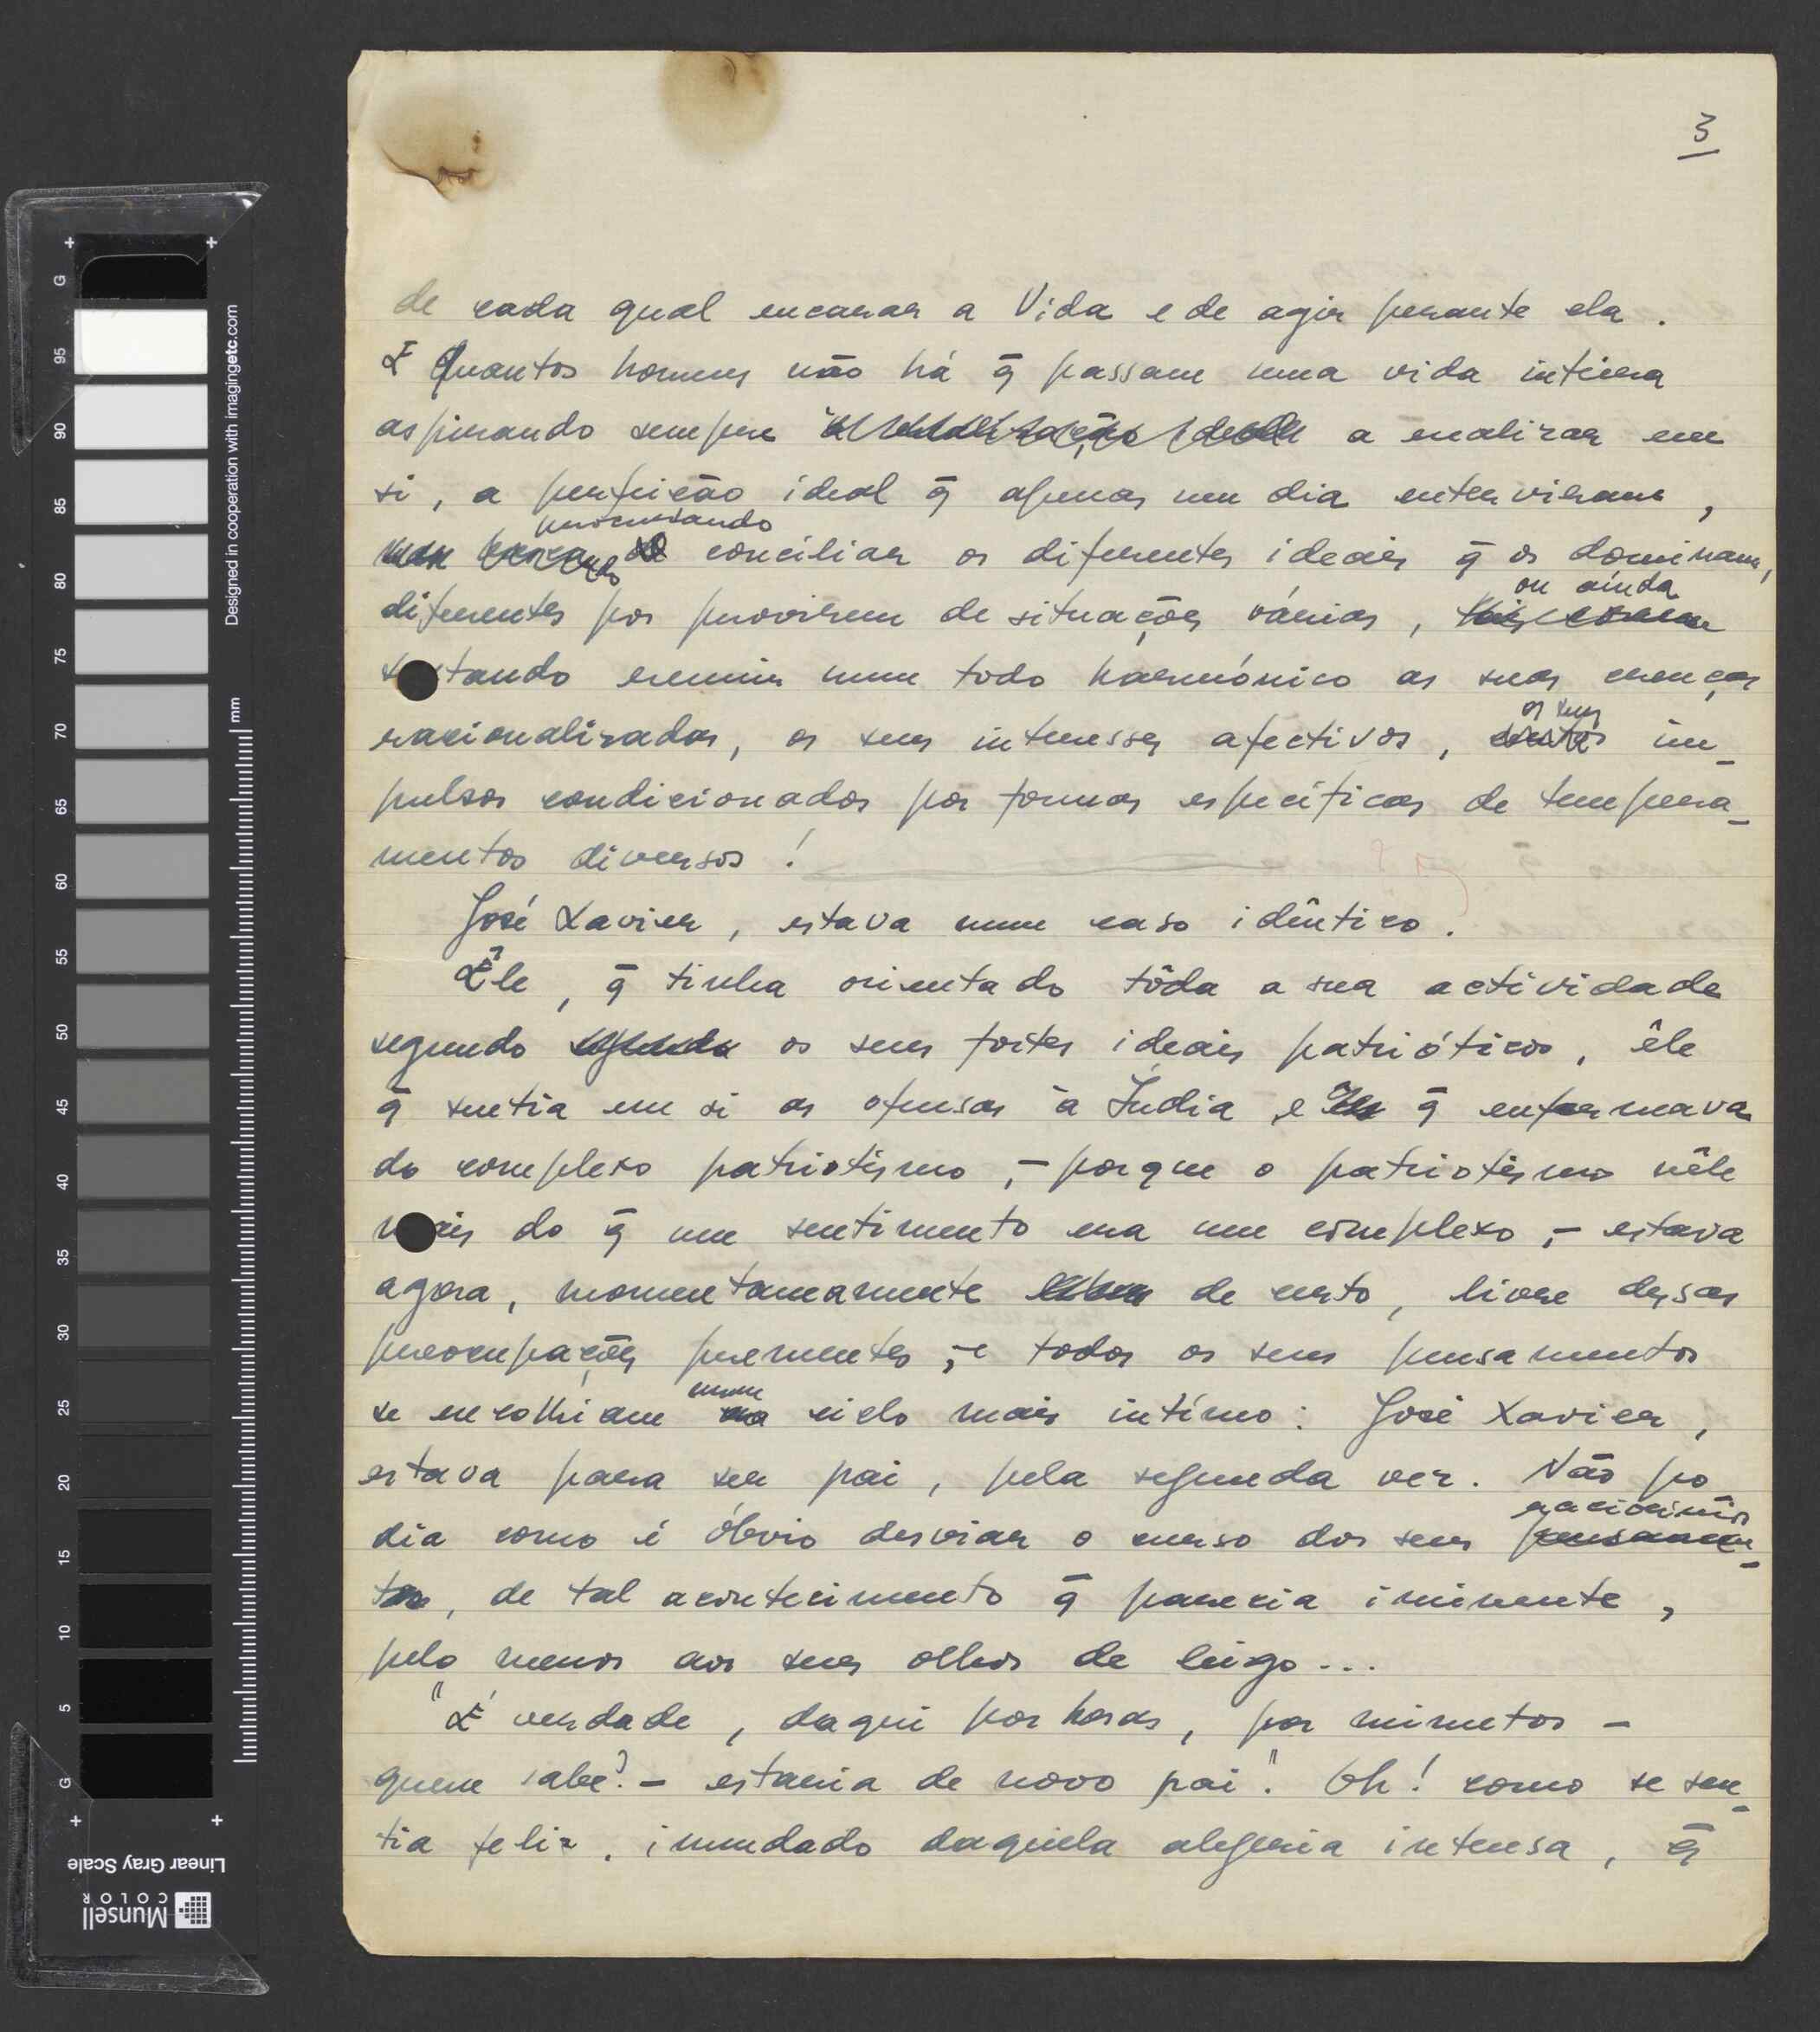 3
de cada qual encarar a Vida e de agir perante ela.
E Quantos homens não há q̃ passam uma vida inteira
aspirando sempre a realizar em
si, a perfeição ideal q̃ apenas um dia entreviram,
procurando
conciliar os diferentes ideais q̃ os dominam,
ou ainda
diferentes por provirem de situações várias,
tentando reunir num todo harmónico as suas crenças
racionalizadas, os seus interesses afectivos, os seus im-
pulsos condicionados por formas específicas de tempera-
mentos diversos!
José Xavier, estava num caso idêntico.
Êle, q̃ tinha orientado tôda a sua actividade
segundo os seus fortes ideais patrióticos, êle
q̃ sentia em si as ofensas à Índia e q̃ enfermava
do complexo patriotismo, - porque o patriotismo nêle
mais do q̃ um sentimento era um complexo, - estava
agora, momentaneamente de certo, livre dessas
preocupações prementes, - e todos os seus pensamentos
num
se encolhiam ciclo mais íntimo: José Xavier,
estava para ser pai, pela segunda vez. Não po
raciocínios
dia como é óbvio desviar o curso dos seus pensamen-
tos, de tal acontecimento q̃ parecia iminente,
pelo menos aos seus olhos de leigo...
"É verdade, daqui por horas, por minutos -
quem sabe? - estaria de novo pai". Oh! como se sen-
tia feliz, inundado daquela alegria intensa, q̃
Designed in cooperation with imagingetc.com
mm
G 95 90 85 80 75 70 65 60 55 50 45 40 35 30 25 20 15 10 5 G
Linear Gray Scale
Munsell
COLOR